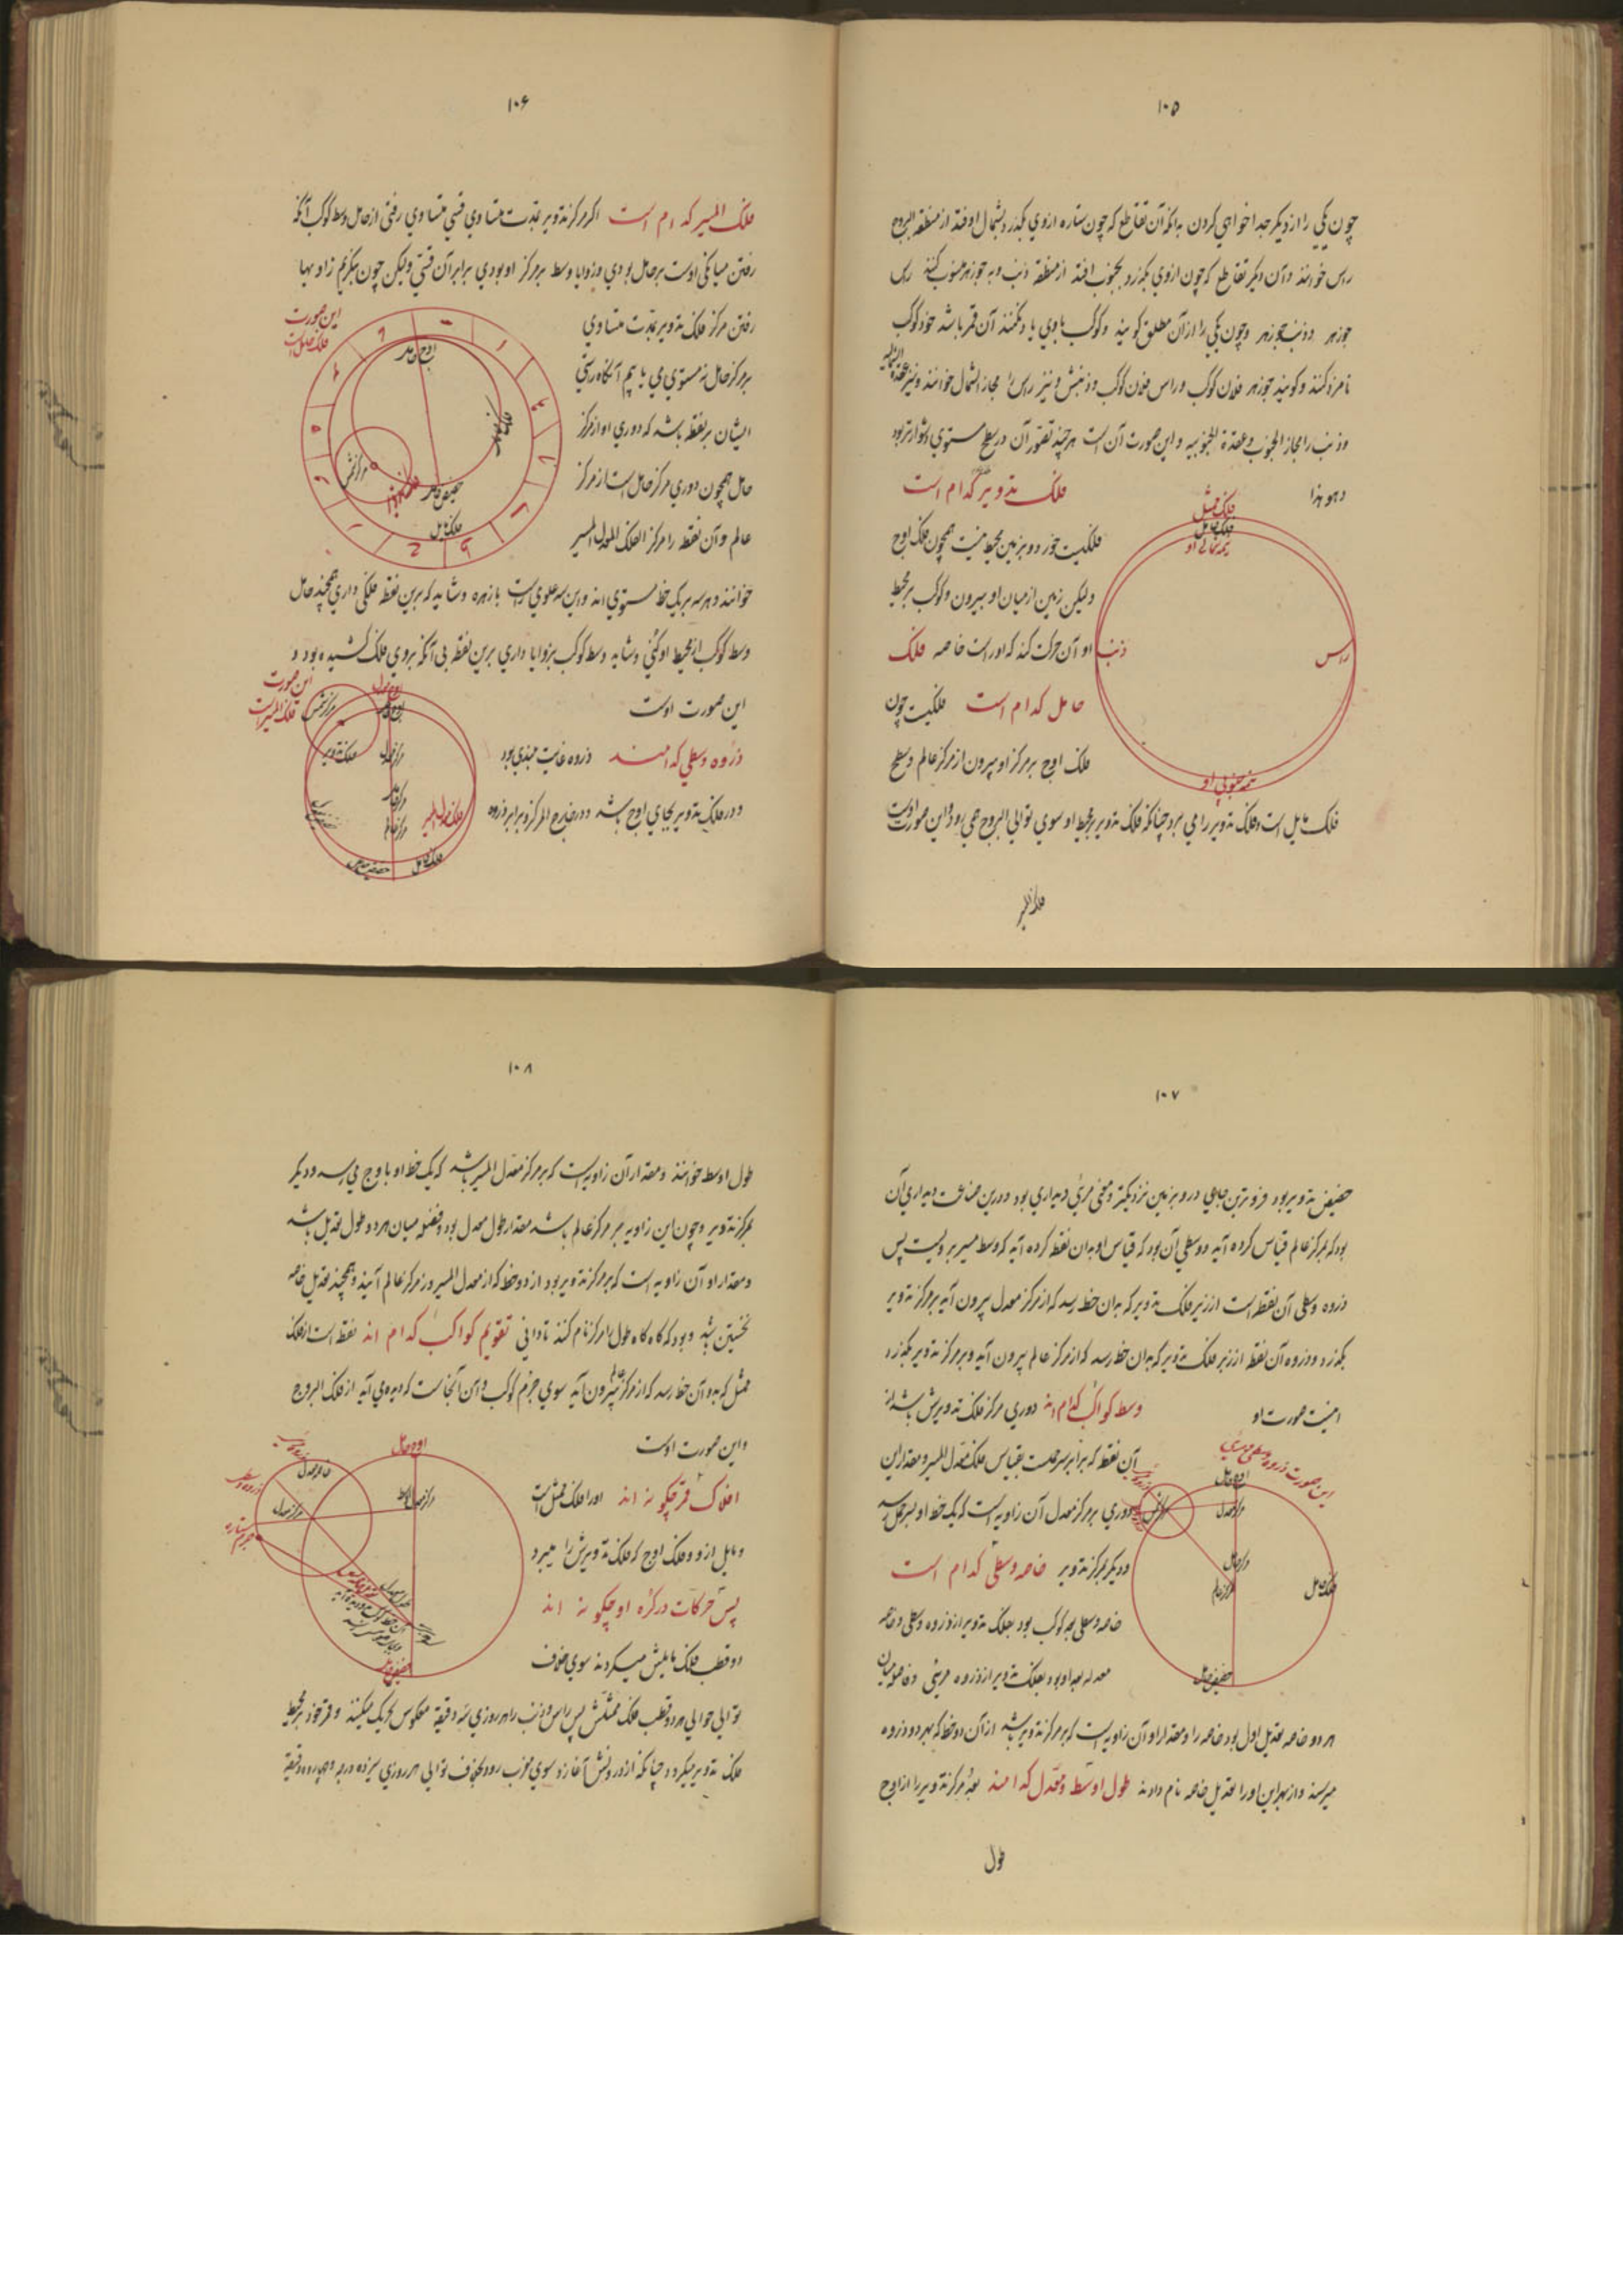 ۱۰۵
چون یکی را از دیکر جدا خواهی کردن بدانکه آن تقاطع که چون ستاره ازوی بکذرد بشمال اوفتد از منطقة البروج
راس خوانند و آن دیکر تقاطع که چون ازوی بکذرد بجنوب افتد از منطقه ذنب و به جوزهر منسوب کنند راس
جوزهر و ذنب جوزهر و چون یکی را از آن مطلق کویند و کوکب باوی یاد نکنند آن قمر باشد خود کوکب
نامزد کنند و کویند جوزهر فلان کوکب و راس فلان کوکب و ذنبش و نیز راس را مجاز الشمال خوانند و نیز عقدة الشمالیه
و ذنب را مجاز الجنوب و عقدة الجنوبیه و این صورت آن است هر چند تصور آن در سطح مستوی دشوارتر بود
وهو هذا
فلک تدویر کدام است
فلک ممثل
فلک مایل
نیمه شمالی او
فلکیست خرد و بزمین محیط نیست همچون فلک اوج
ولیکن زمین از میان او بیرون و کوکب بر محیط
او آن حرکت کند که اوراست خاصه فلک
ذنب
راس
حامل کدام است فلکیست چون
فلک اوج بر مرکز او بیرون از مرکز عالم و سطح
نیمه جنوبی او
فلک مایل است و فلک تدویر را می برد چنانکه فلک تدویر بر محیط او سوی توالی البروج همی رود و این صورت اوست
فلک المسیر
۱۰۶
فلک المسیر کدام است اکر مرکز تدویر بمدت متساوی قسی متساوی رفتی از حامل وسط کوکب آنکه
رفتن میانکی اوست بر حامل بودی و زوایا وسط بر مرکز او بودی برابر آن قسی ولیکن چون بنکریم زاویها
رفتن مرکز فلک تدویر بمدت متساوی
بر مرکز حامل نه مستوی می یابیم آنکاه راستی
ایشان بر نقطه باشد که دوری او از مرکز
حامل همچون دوری مرکز حامل است از مرکز
عالم و آن نقطه را مرکز الفلک المعدل المسیر
این صورت
فلک حامل است
اوج حامل
حضیض حامل
فلک مایل
خوانند و هر سه بر یک خط مستوی اند و این سه علوی راست بازهره و شاید که برین نقطه فلکی داری همچند حامل
وسط کوکب از محیط او کنی و شاید وسط کوکب بزوایا داری برین نقطه بی آنکه بروی فلک کشیده بود و
این صورت اوست
ذروه وسطی کدامند ذروه غایت بلندی بود
و در فلک تدویر بجای اوج باشد و در خارج المرکز و برابر ذروه
این صورت
فلک المسیر است
فلک تدویر
مرکز معدل
مرکز حامل
مرکز عالم
فلک معدل المسیر
فلک حامل
حضیض حامل
۱۰۷
حضیض تدویر بود فروترین جایی در و بزمین نزدیکتر و معنی مرئی دیداری بود و درین صناعت دیداری آن
بود که بمرکز عالم قیاس کرده آید و وسطی آن بود که قیاس او بدان نقطه کرده آید که وسط مسیر بر ویست پس
ذروه وسطی آن نقطه است از زبر فلک تدویر که بدان خط رسد که از مرکز معدل بیرون آید بر مرکز تدویر
بکذرد و ذروه آن نقطه از زبر فلک تدویر که بدان خط رسد که از مرکز عالم بیرون آید و بر مرکز تدویر بکذرد
اینست صورت او
وسط کواکب کدام اند دوری مرکز فلک تدویرش باشد از
آن نقطه که برابر سر حمل است بقیاس فلک معدل المسیر و مقدار این
دوری بر مرکز معدل آن زاویه است که یک خط او بسر حمل رسد
و دیکر بمرکز تدویر خاصه وسطی کدام است
خاصه وسطی بعد کوکب بود بفلک تدویر از ذروه وسطی و خاصه
معدله بعد او بود بفلک تدویر از ذروه مرئی و فاضل میان
این صورت ذروه وسطی و مرئی
اوج حامل
مرکز معدل
مرکز حامل
مرکز عالم
فلک حامل
حضیض حامل
هر دو خاصه تعدیل اول بود خاصه را و مقدار او آن زاویه است که بر مرکز تدویر باشد از آن دو خط که بهر دو ذروه
میرسند و از بهر این او را تعدیل خاصه نام دادند طول اوسط و معدل کدامند بعد مرکز تدویر را از اوج
طول
۱۰۸
طول اوسط خوانند و مقدار آن زاویه است که بر مرکز معدل المسیر باشد که یک خط او باوج می رسد و دیکر
بمرکز تدویر و چون این زاویه بر مرکز عالم باشد مقدار طول معدل بود و فضل میان هر دو طول تعدیل باشد
و مقدار او آن زاویه است که بر مرکز تدویر بود از دو خط که از معدل المسیر و از مرکز عالم آیند و همچند تعدیل خاصه
نخستین باشد و بود که کاه کاه طول را مرکز نام کنند تا دانی تقویم کواکب کدام اند نقطه است از فلک
ممثل که بدو آن خط رسد که از مرکز عالم بیرون آید سوی جرم کوکب و آن آنجاست که دیده می آید از فلک البروج
و این صورت اوست
افلاک قمر چکونه اند او را فلک ممثل است
و مایل ازو و فلک اوج که فلک تدویرش را همی برد
پس حرکات در کره او چکونه اند
دو قطب فلک مایلش میکردند سوی خلاف
اوج حامل
مرکز معدل
حضیض حامل
توالی حوالی هر دو قطب فلک ممثلش پس راس و ذنب را هر روزی سه دقیقه معکوس تحریک میکنند و قمر خود بر محیط
فلک تدویر میکردد چنانکه از ذروتش آغازد سوی مغرب رود بخلاف توالی هر روزی سیزده درجه و چهارده دقیقه